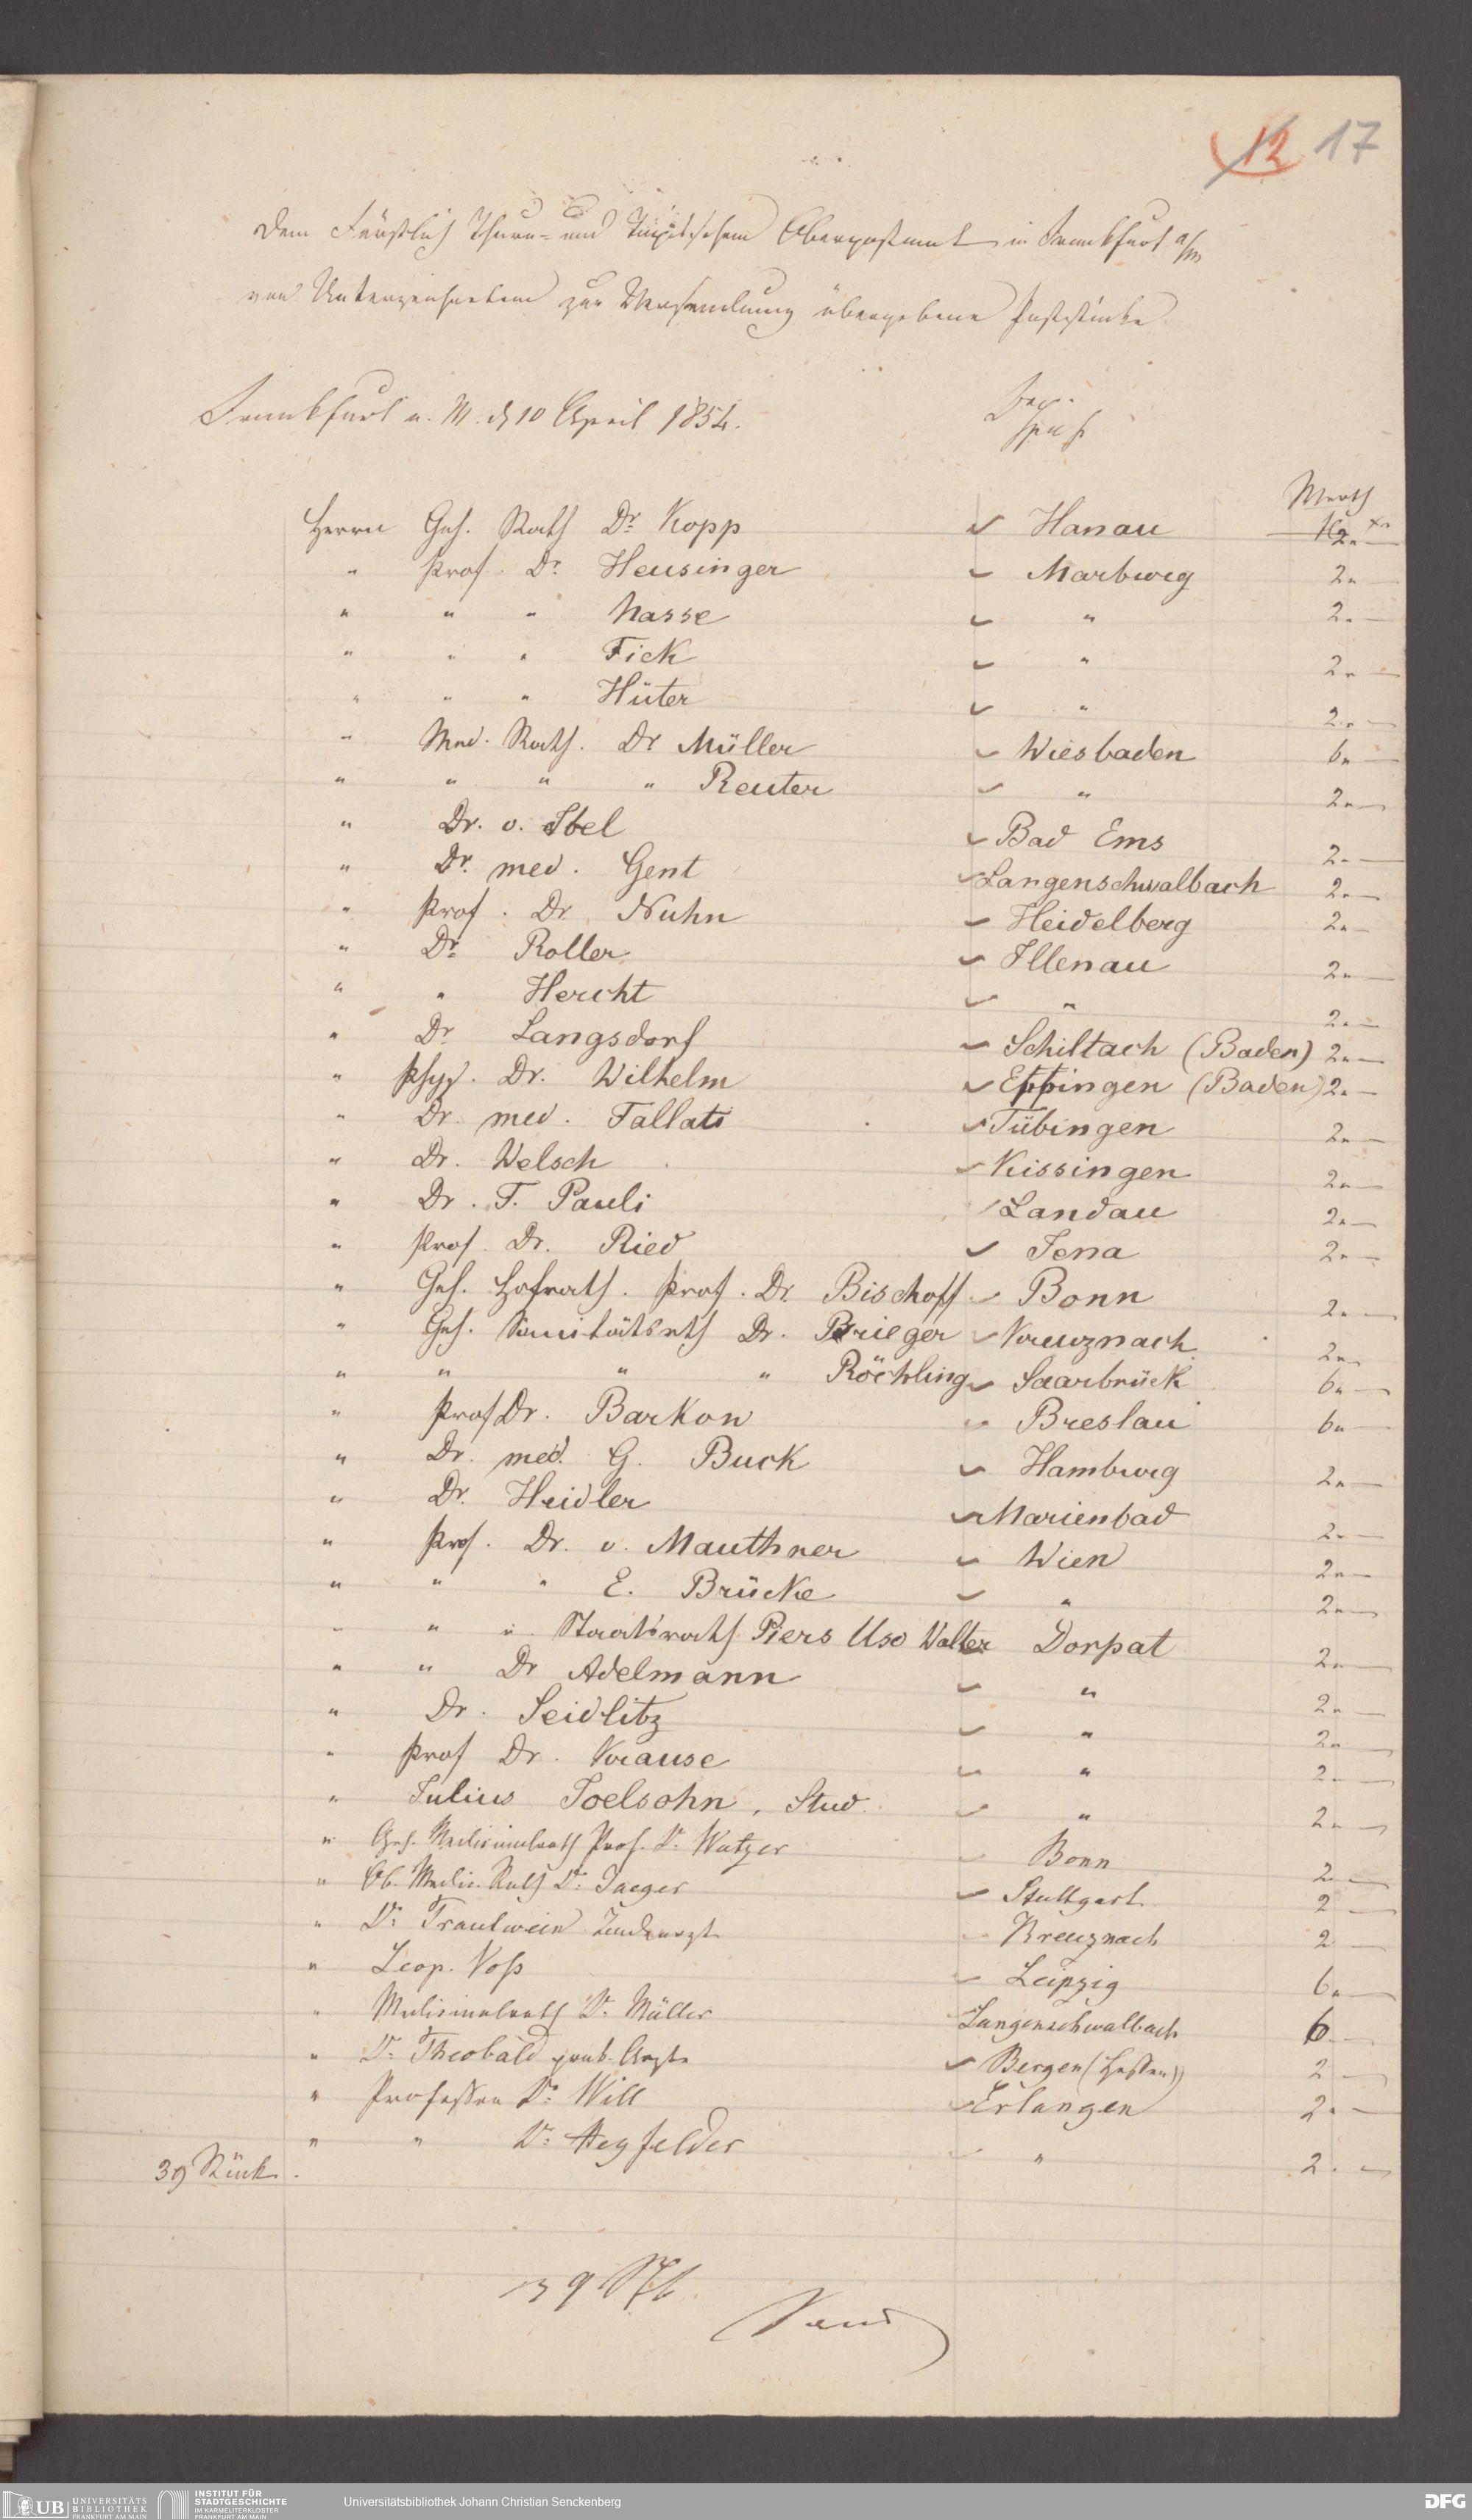 12 17
Dem Fürstlich Thurn- und Taxis'schem Oberpostamt in Frankfurt a/m
von Unterzeichnetem zur Versendung übergebene Poststücke.
Frankfurt a. M. d 10 April 1854.
Werth
Herrn Geh. Rath Dr. Kopp Hanau 2 "
" Prof. Dr. Heusinger Marburg 2 "
" " " Nasse " 2 "
" " " Fick " 2 "
" " " Hüter " 2 "
" Med. Rath. Dr Müller Wiesbaden 6 "
" " " " Reuter " 2 "
" Dr. v. Ibel Bad Ems 2 "
" Dr. med. Gent Langenschwalbach 2 "
" Prof. Dr. Nuhn Heidelberg 2 "
" Dr. Roller Illenau 2 "
" " Hercht " 2 "
" Dr. Langsdorf Schiltach (Baden) 2 "
" Phys. Dr. Wilhelm Eppingen (Baden) 2 "
" Dr. med. Fallati Tübingen 2 "
" Dr. Welsch Kissingen 2 "
" Dr. F. Pauli Landau 2 "
" Prof. Dr. Ried Jena 2 "
" Geh. Hofrath. Prof. Dr. Bischoff Bonn 2 "
" Geh. Sanitätsrth Dr. Prieger Kreuznach 2 "
" " " " Röchling Saarbrück 6 "
" Prof Dr. Barkow Breslau 6 "
" Dr. med. G. Buck Hamburg 2 "
" Dr. Heidler Marienbad 2 "
" Prof. Dr. v. Mauthner Wien 2 "
" " " E. Brücke " 2 "
" " u. Staatsrath Piers Uso Walter Dorpat 2 "
" " Dr Adelmann " 2 "
" Dr. Seidlitz " 2 "
" Prof Dr. Krause " 2 "
" Julius Joelsohn, Stud. " 2 "
" Geh. Medicinalrath Prof. Dr. Wutzer Bonn 2 "
" Ob. Medic. Rath Dr. Jaeger Stuttgart 2
" Dr. Trautwein Kreuznach 2
" Leop. Voß Leipzig 6 "
" Medicinalrath Dr. Müller Langenschwalbach 6
" Dr. Theobald prakt. Arzt Bergen (Hessen) 2
" Professor Dr. Will Erlangen 2 "
" " Dr. Heyfelder " 2 "
39 Stück.
39 Stk
UB UNIVERSITÄTS
BIBLIOTHEK
FRANKFURT AM MAIN
INSTITUT FÜR
STADTGESCHICHTE
IM KARMELITERKLOSTER
FRANKFURT AM MAIN
Universitätsbibliothek Johann Christian Senckenberg
DFG